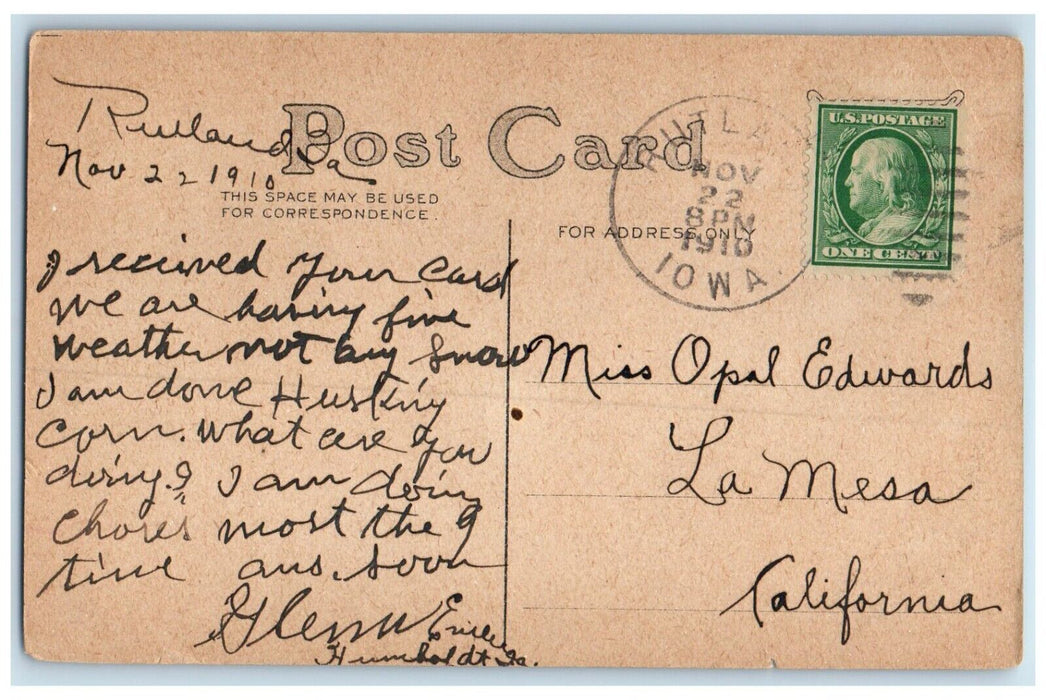 Post Card
Rutland Ia
Nov 22 1910
THIS SPACE MAY BE USED
FOR CORRESPONDENCE.
I received your card
we are having fine
weather not any snow
I am done Husking
Corn. What are you
doing? I am doing
"Chores" most the
time ans. soon
Glenn
Humboldt Ia.
FOR ADDRESS ONLY
RUTLAND
NOV
22
8PM
1910
IOWA.
U.S. POSTAGE
ONE CENT
Miss Opal Edwards
La Mesa
California